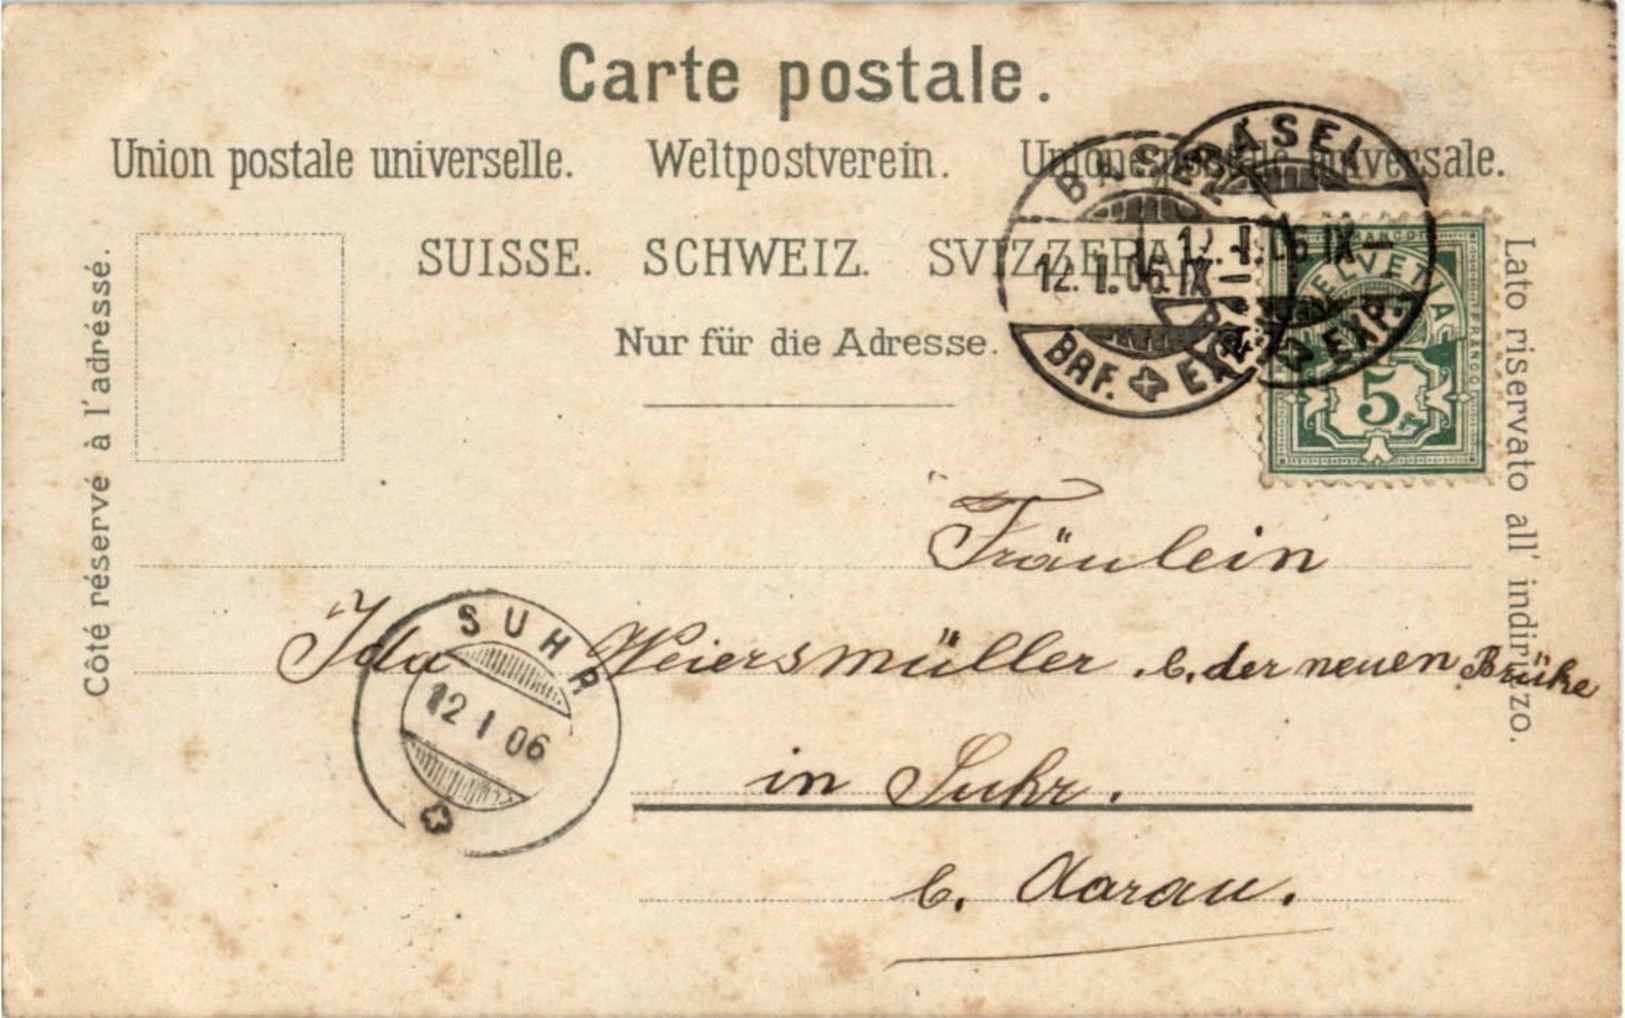 Carte postale.
Union postale universelle. Weltpostverein. Unione postale universale.
SUISSE. SCHWEIZ. SVIZZERA.
Nur für die Adresse.
Côté réservé à l'adréssé.
Lato riservato all' indirizzo.
BASEL
12. I. 06. IX–
BRF. EXP.
BASEL
12. I. 06 IX–
EXP.
FRANCO
HELVETIA
FRANCO
5
Fräulein
Ida Weiersmüller . b. der neuen Brüke
in Suhr.
b. Aarau.
SUHR
12 I 06